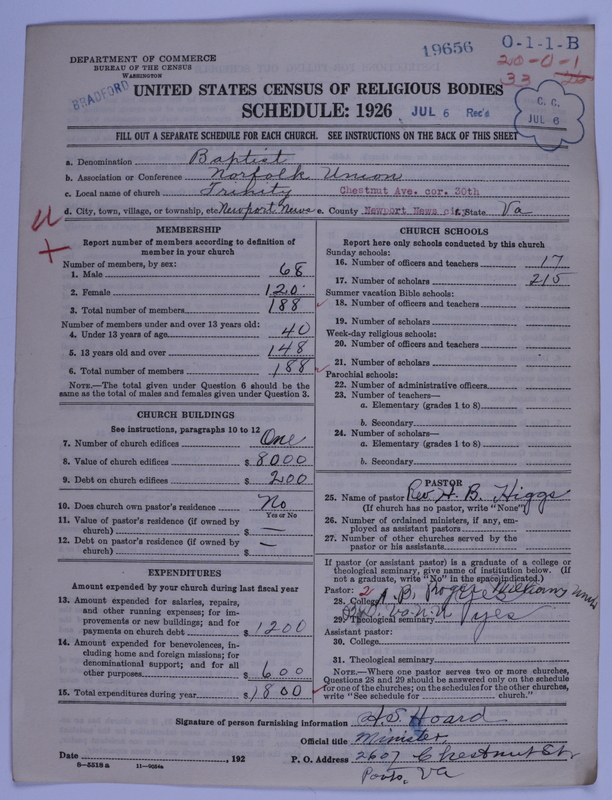 19656
O-1-1-B
20-0-1
33
DEPARTMENT OF COMMERCE
BUREAU OF THE CENSUS
WASHINGTON
BRADFORD
UNITED STATES CENSUS OF RELIGIOUS BODIES
SCHEDULE: 1926
JUL 6 Rec'd
C. C.
JUL 6
FILL OUT A SEPARATE SCHEDULE FOR EACH CHURCH. SEE INSTRUCTIONS ON THE BACK OF THIS SHEET
a. Denomination Baptist
b. Association or Conference Norfolk Union
c. Local name of church Trinity Chestnut Ave. cor. 30th
d. City, town, village, or township, etc. Newport News e. County Newport News city f. State Va
MEMBERSHIP
Report number of members according to definition of
member in your church
Number of members, by sex:
1. Male 68
2. Female 120
3. Total number of members 188
Number of members under and over 13 years old:
4. Under 13 years of age 40
5. 13 years old and over 148
6. Total number of members 188
NOTE.—The total given under Question 6 should be the
same as the total of males and females given under Question 3.
CHURCH BUILDINGS
See instructions, paragraphs 10 to 12
7. Number of church edifices One
8. Value of church edifices $ 8000
9. Debt on church edifices $ 200
10. Does church own pastor's residence No
Yes or No
11. Value of pastor's residence (if owned by
church) $ —
12. Debt on pastor's residence (if owned by
church) $ —
EXPENDITURES
Amount expended by your church during last fiscal year
13. Amount expended for salaries, repairs,
and other running expenses; for im-
provements or new buildings; and for
payments on church debt $ 1200
14. Amount expended for benevolences, in-
cluding home and foreign missions; for
denominational support; and for all
other purposes $ 600
15. Total expenditures during year $ 1800
CHURCH SCHOOLS
Report here only schools conducted by this church
Sunday schools:
16. Number of officers and teachers 17
17. Number of scholars 215
Summer vacation Bible schools:
18. Number of officers and teachers
19. Number of scholars
Week-day religious schools:
20. Number of officers and teachers
21. Number of scholars
Parochial schools:
22. Number of administrative officers
23. Number of teachers—
a. Elementary (grades 1 to 8)
b. Secondary
24. Number of scholars—
a. Elementary (grades 1 to 8)
b. Secondary
PASTOR
25. Name of pastor Rev. H. B. Higgs
(If church has no pastor, write "None")
26. Number of ordained ministers, if any, em-
ployed as assistant pastors
27. Number of other churches served by the
pastor or his assistants
If pastor (or assistant pastor) is a graduate of a college or
theological seminary, give name of institution below. (If
not a graduate, write "No" in the space indicated.)
Pastor: 2
28. College
29. Theological seminary yes
Assistant pastor:
30. College
31. Theological seminary
NOTE.—Where one pastor serves two or more churches,
Questions 28 and 29 should be answered only on the schedule
for one of the churches; on the schedules for the other churches,
write "See schedule for church."
Signature of person furnishing information H. S. Hoard
Official title Minister
Date , 192 P. O. Address 2607 Chestnut St
8—5518a 11—9024a
Va